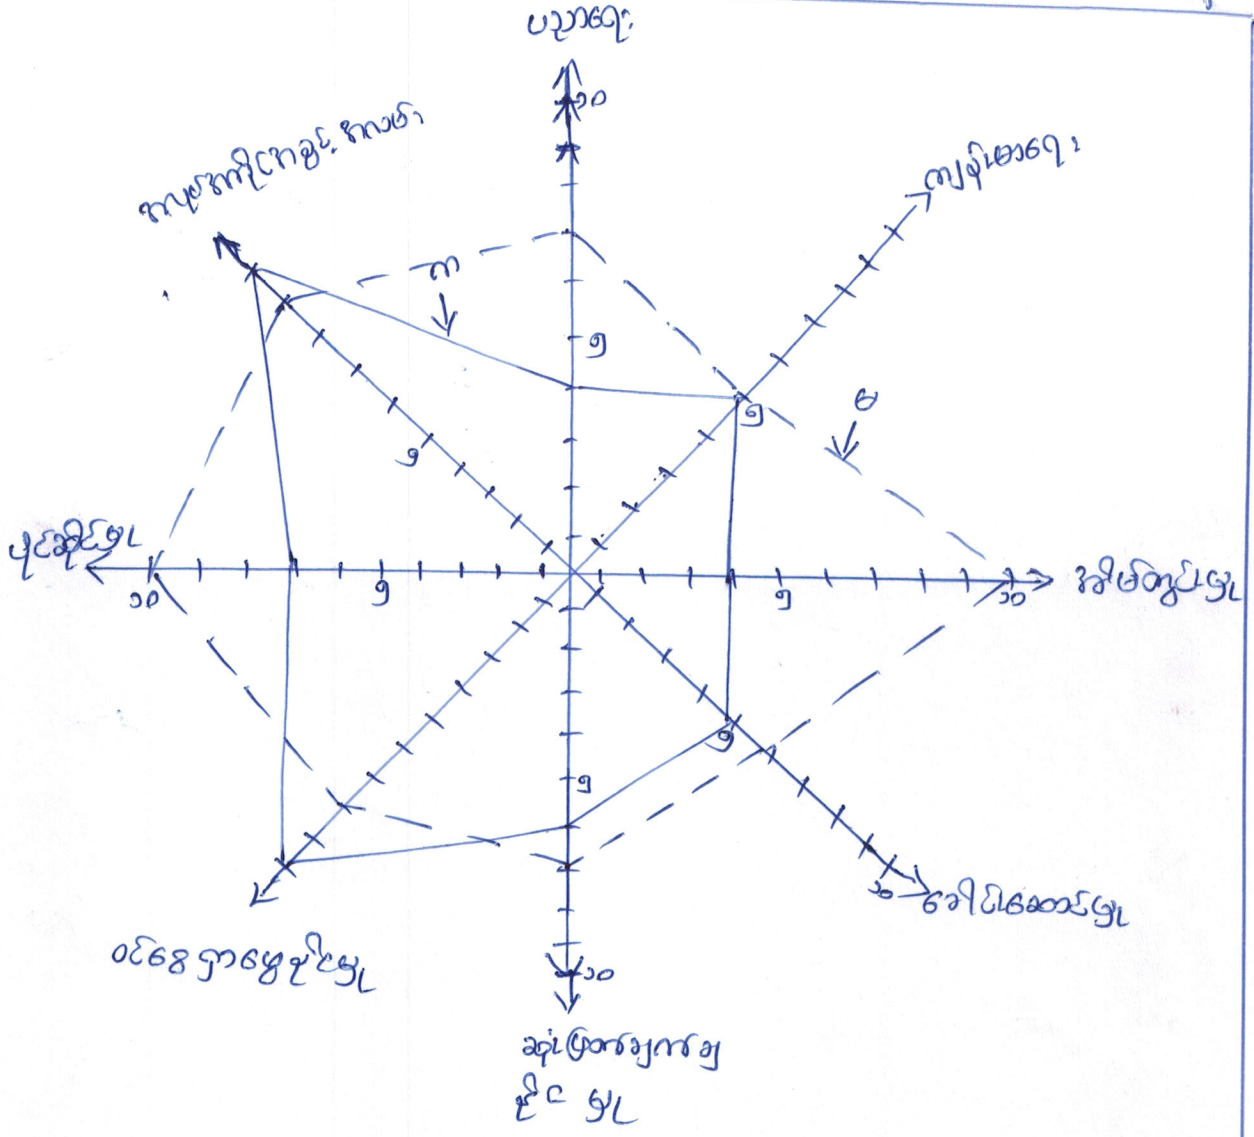 ပညာရေး
၁၀
အလုပ်အကိုင်အခွင့်အလမ်း
ကျန်းမာရေး
က
၅
၅
မ
၅
ပိုင်ဆိုင်မှု
၁၀
၅
၅
၁၀
အိမ်တွင်းမှု
၅
၅
၁၀
ခေါင်းဆောင်မှု
ဝင်ငွေရှာဖွေနိုင်မှု
၁၀
ဆုံးဖြတ်ချက်ချ
နိုင်မှု